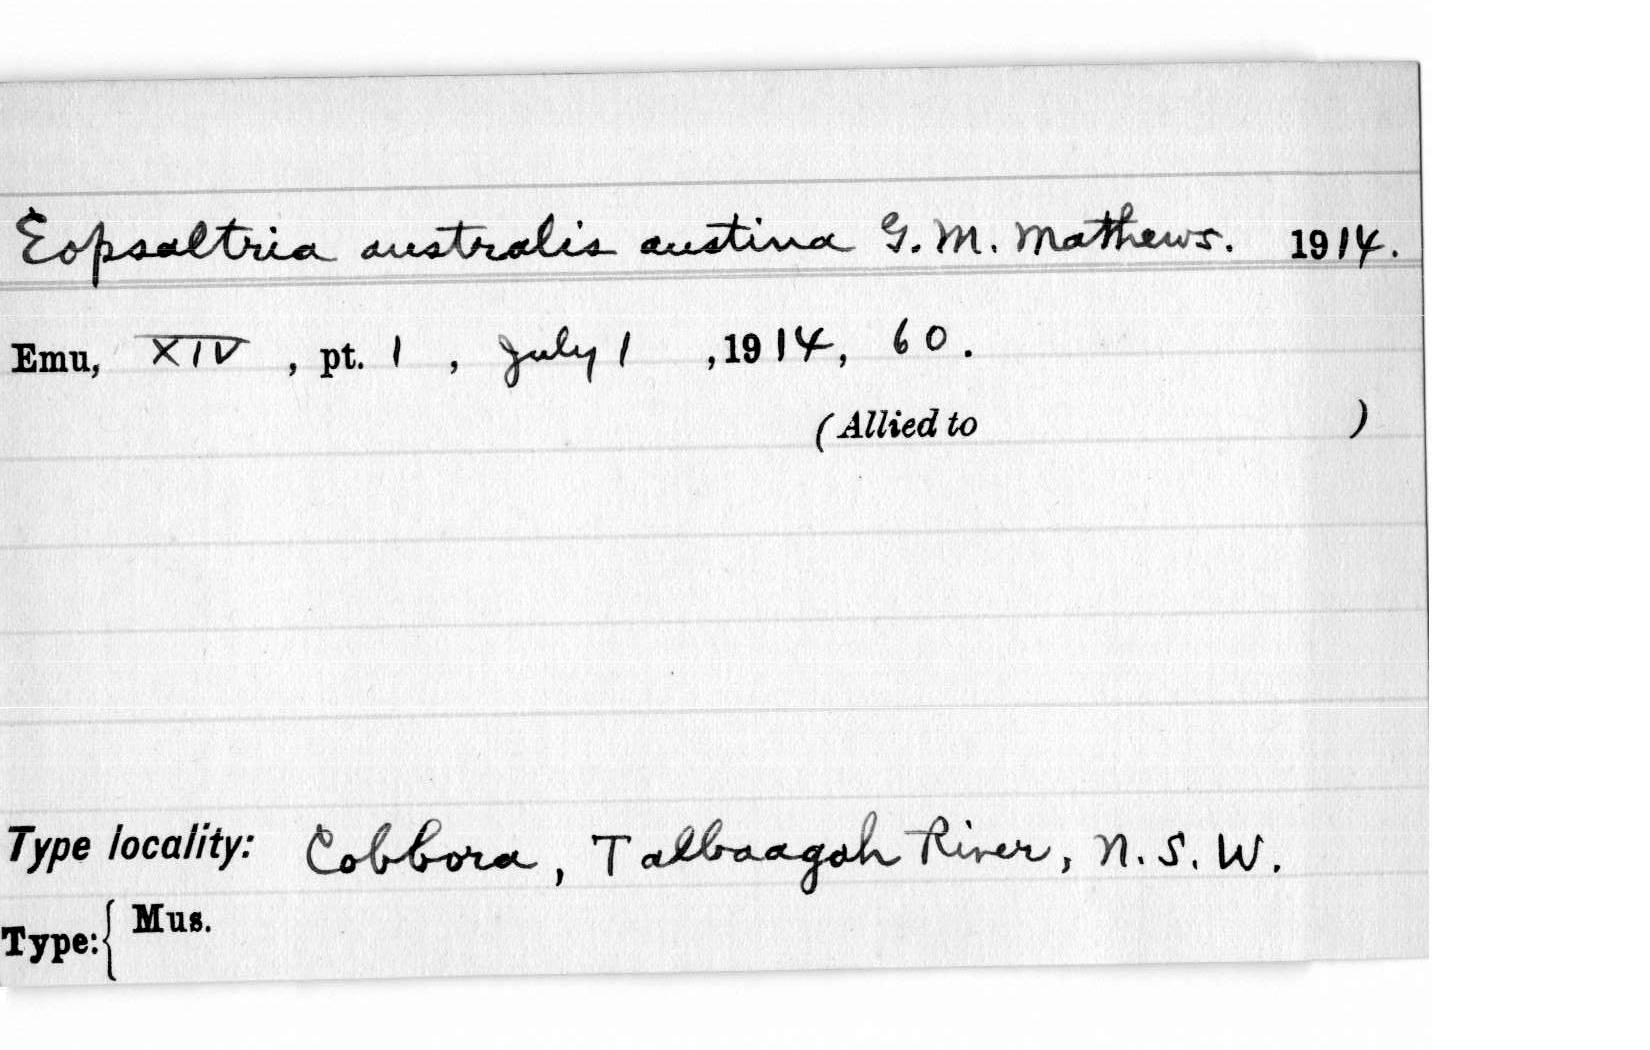 Eopsaltria australis austina G. M. Mathews. 1914.
Emu, XIV, pt. 1, July 1, 1914, 60.
(Allied to )
Type locality: Cobbora, Talbaagah River, N. S. W.
Type: { Mus.